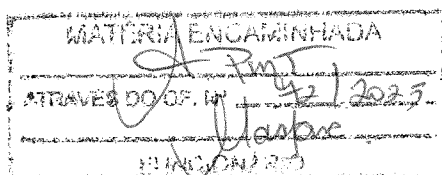 MATÉRIA ENCAMINHADA
A PMJ
ATRAVÉS DO OF. Nº 72 / 2025
FUNCIONÁRIO